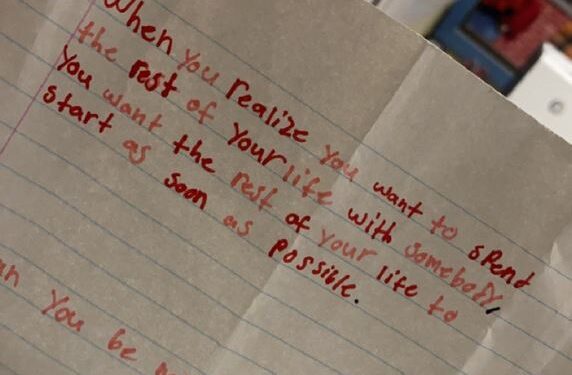 When you realize you want to spend
the rest of your life with somebody,
You want the rest of your life to
start as soon as possible.
You be